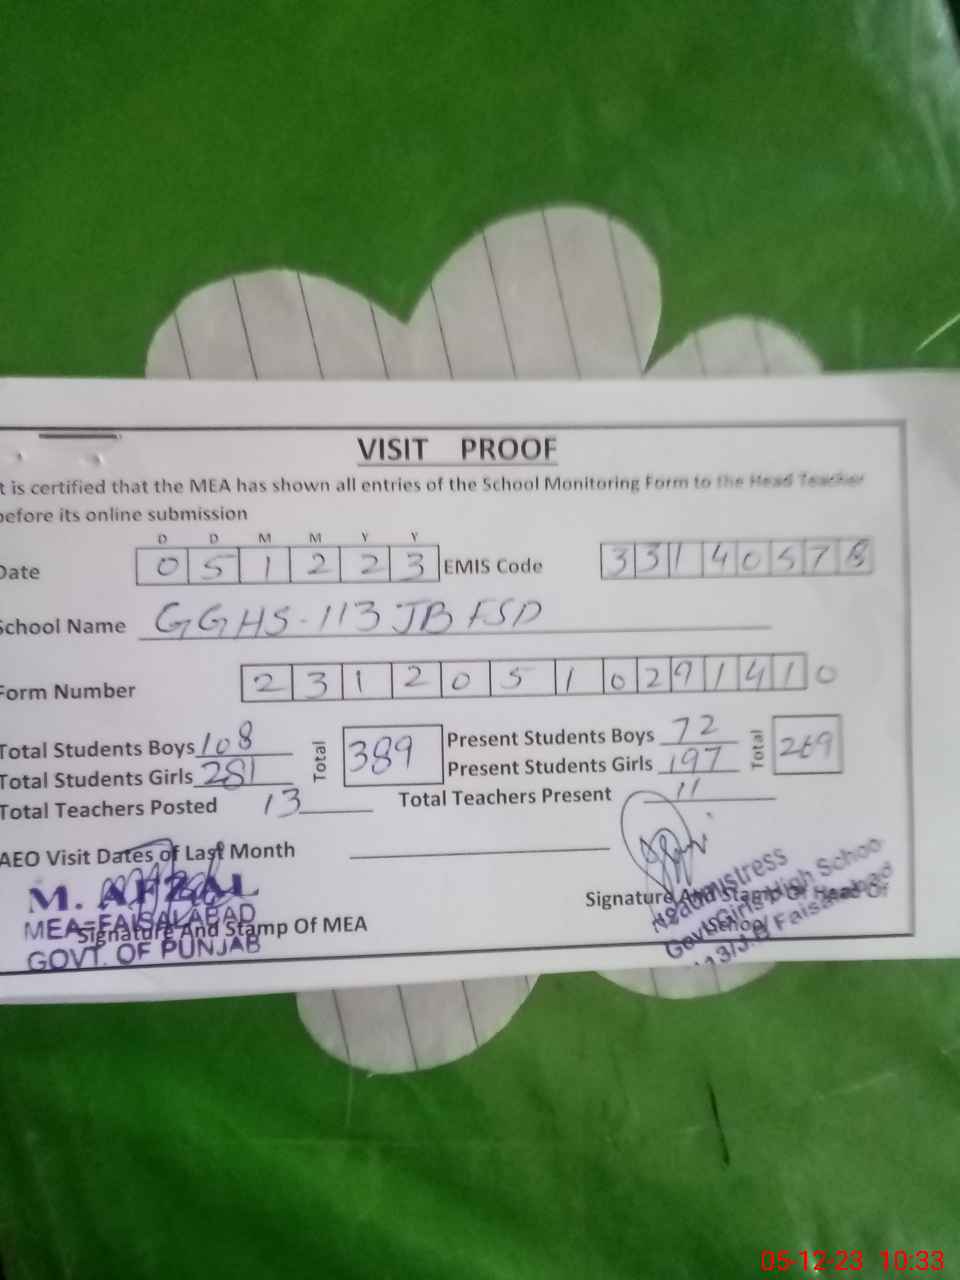 VISIT PROOF
t is certified that the MEA has shown all entries of the School Monitoring Form to the Head Teacher
before its online submission
D D M M Y Y
Date 0 5 1 2 2 3 EMIS Code 3 3 1 4 0 5 7 8
School Name GGHS-113 JB FSD
Form Number 2 3 1 2 0 5 1 0 2 9 1 4 1 0
Total Students Boys 108 Total 389 Present Students Boys 72 Total 269
Total Students Girls 281 Present Students Girls 197
Total Teachers Posted 13 Total Teachers Present 11
AEO Visit Dates of Last Month
M. AFZAL
MEA-FAISALABAD
GOVT. OF PUNJAB
Signature And Stamp Of MEA
Signature And Stamp Of Head Of
School
Headmistress
Govt. Girls High School
113/J.B Faisalabad
05-12-23 10:33